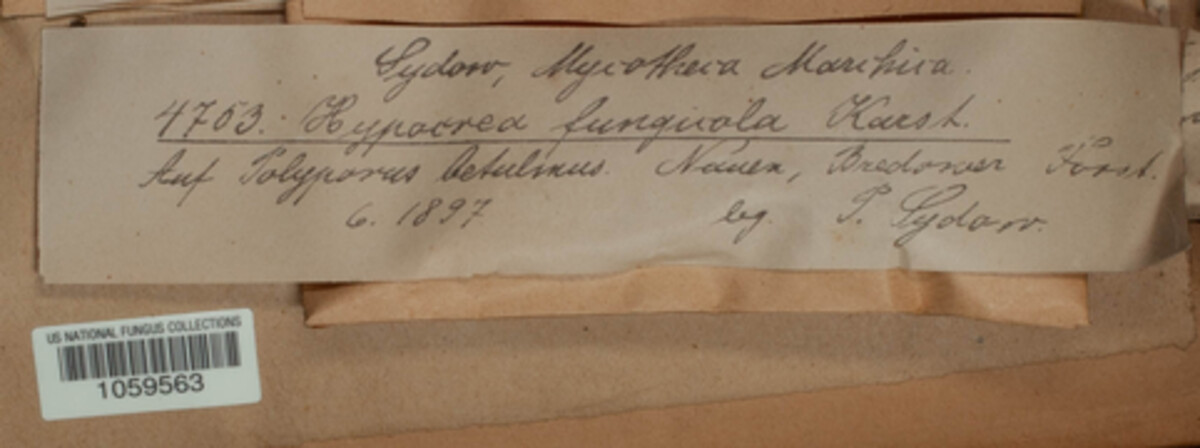 Sydow, Mycotheca Marchica.
4753. Hypocrea fungicola Karst.
Auf Polyporus betulinus. Nauen, Bredower Forst.
6. 1897 leg. P. Sydow.
US NATIONAL FUNGUS COLLECTIONS
1059563